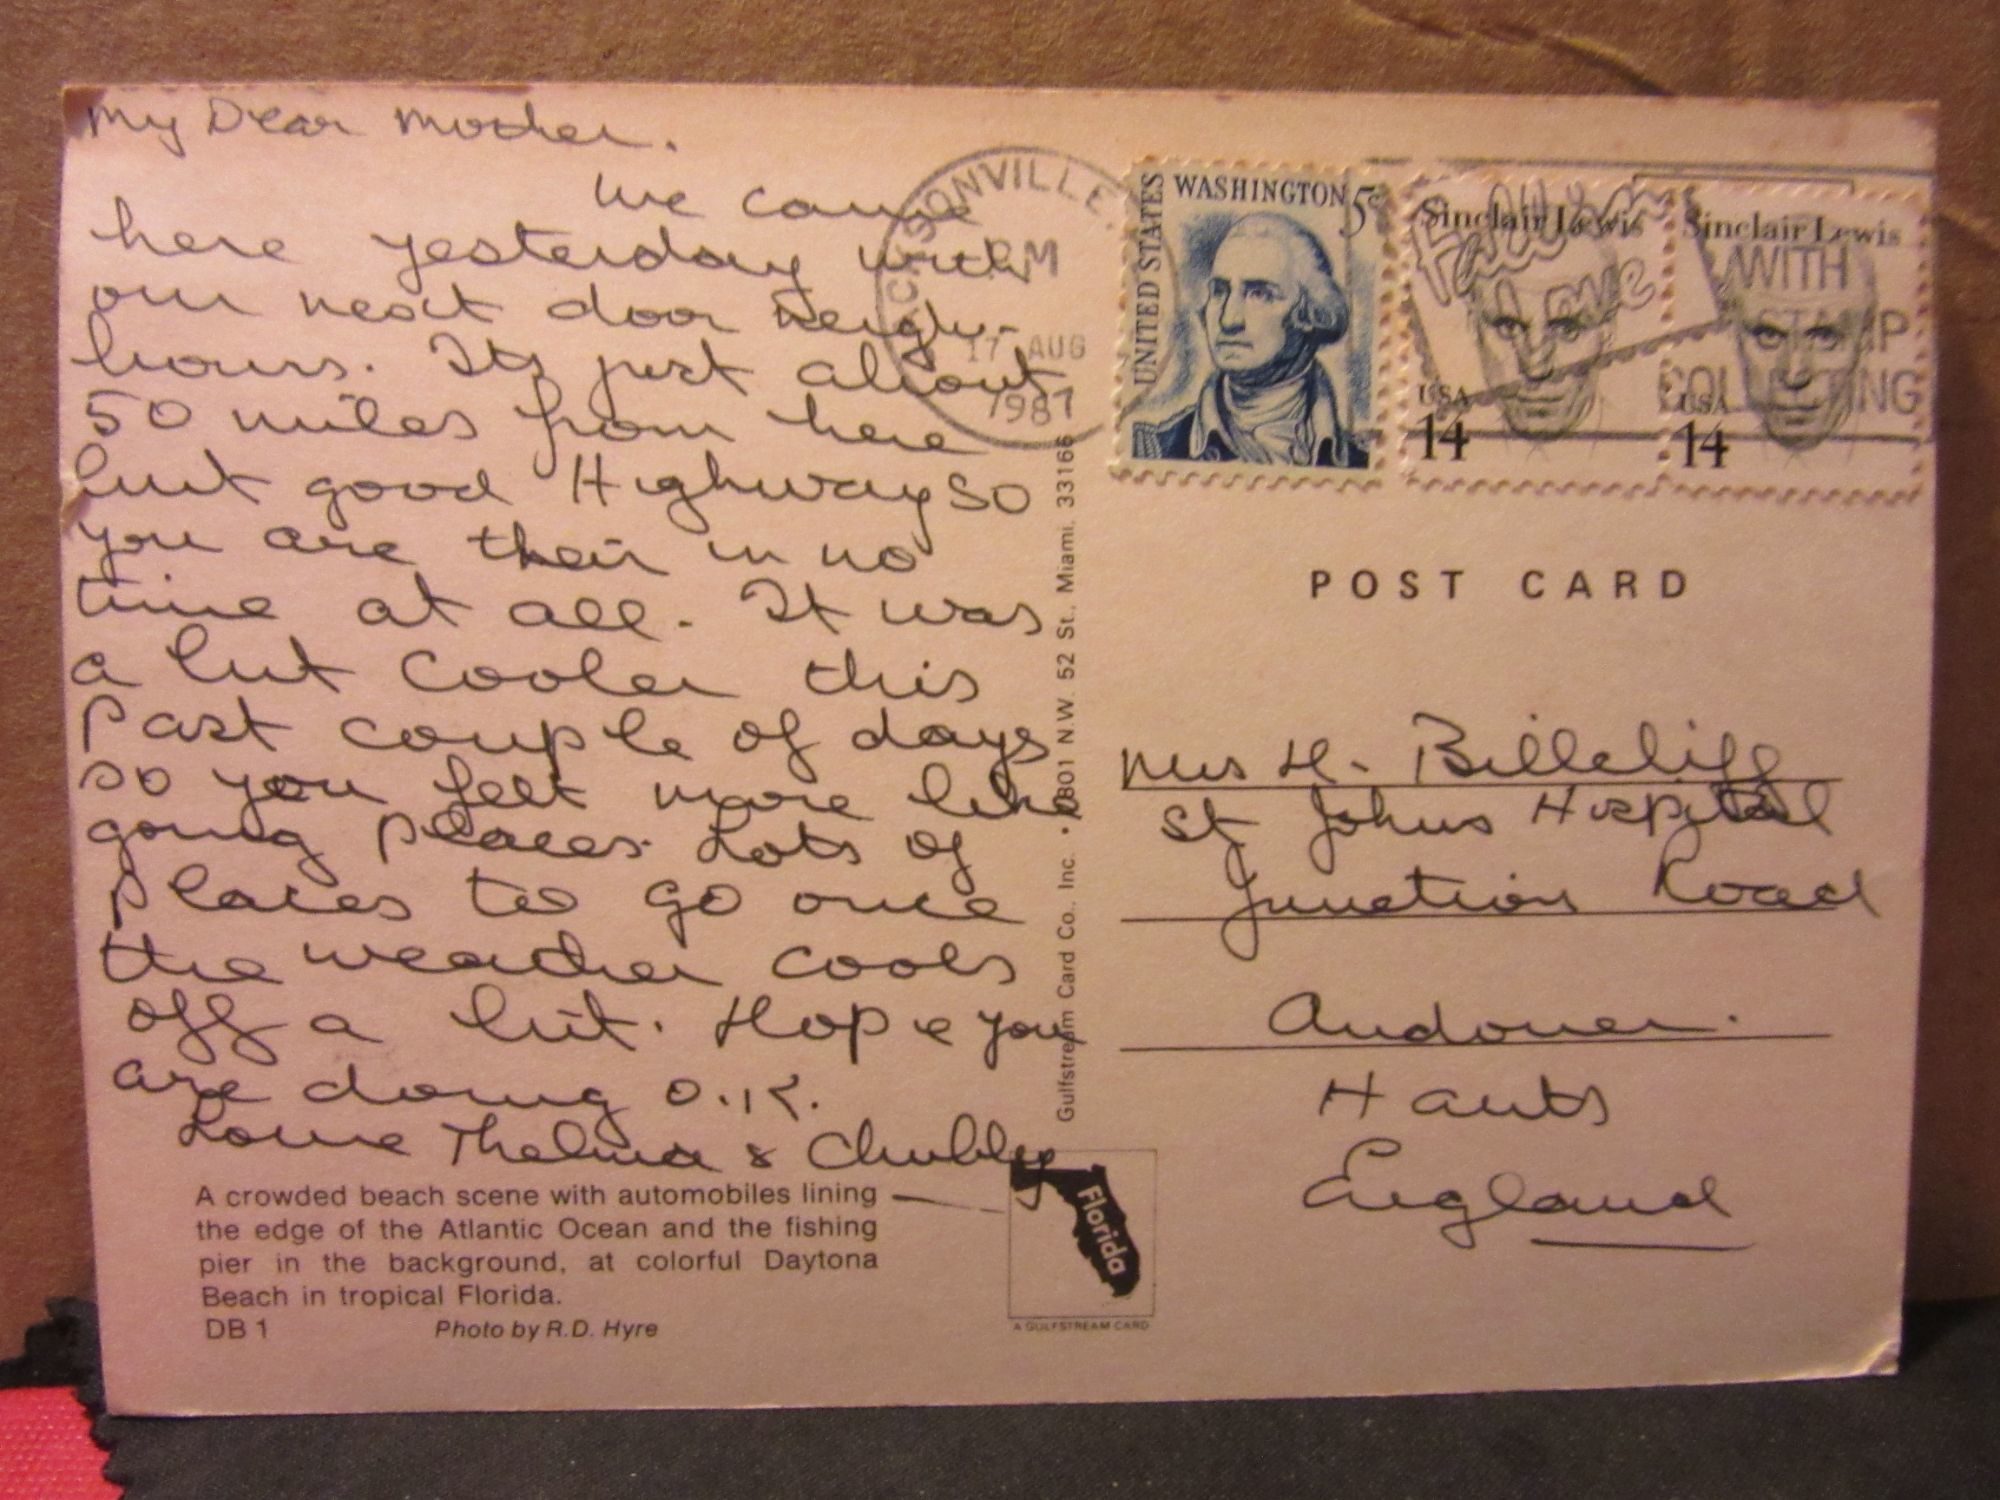 My Dear Mother.
We came
here yesterday with
our next door neigh-
bours. Its just about
50 miles from here
but good Highway so
you are their in no
time at all. It was
a bit cooler this
past couple of days
so you felt more like
going places. Lots of
places to go once
the weather cools
off a bit. Hope you
are doing O.K.
Love Thelma & Chubby
A crowded beach scene with automobiles lining
the edge of the Atlantic Ocean and the fishing
pier in the background, at colorful Daytona
Beach in tropical Florida.
DB 1 Photo by R.D. Hyre
Florida
A GULFSTREAM CARD
Gulfstream Card Co., Inc. • 7801 N.W. 52 St., Miami, 33166
JACKSONVILLE
PM
17 AUG
1987
UNITED STATES
WASHINGTON 5c
Sinclair Lewis
USA
14
Sinclair Lewis
USA
14
Fall in
Love
WITH
STAMP
COLLECTING
POST CARD
Mrs H. Billcliff
St Johns Hospital
Junction Road
Andover.
Hants
England